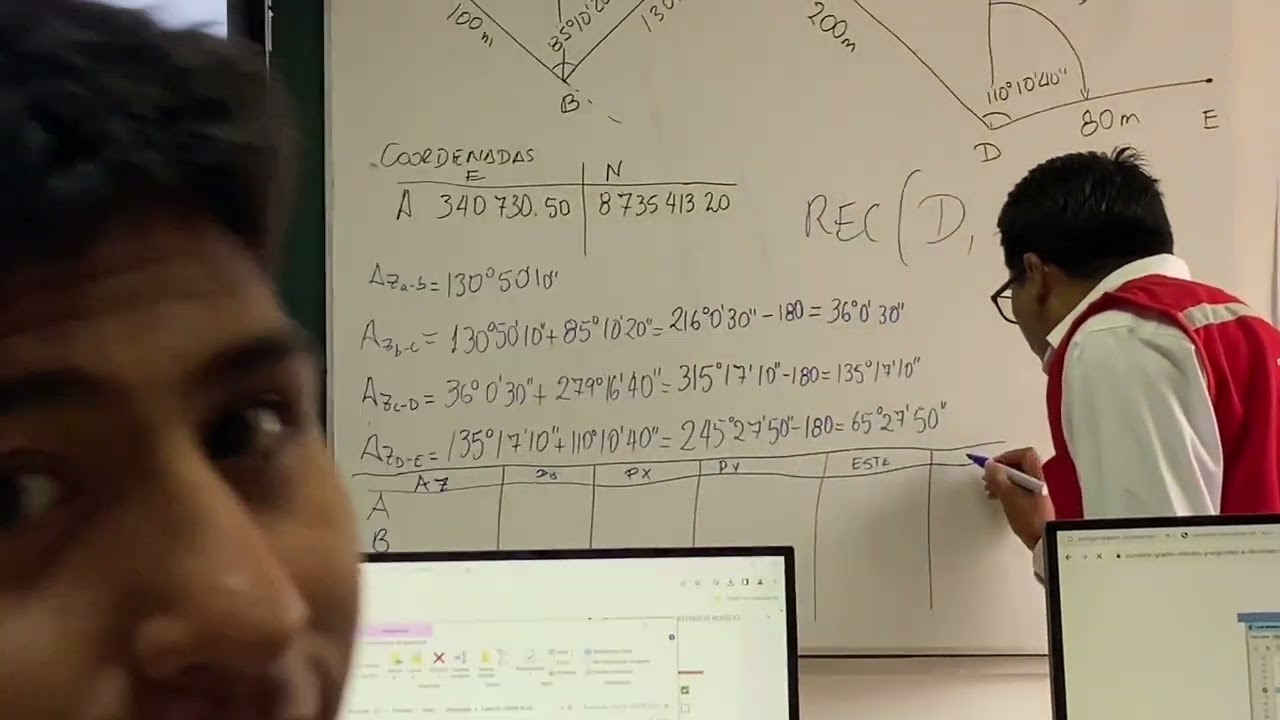 100m
85°10'20"
130
200m
110°10'40"
80m
B
D
E
COORDENADAS
E N
A 340 730.50 8 735 413 20
REC(D,
AZa-b = 130°50'10"
AZb-c = 130°50'10" + 85°10'20" = 216°0'30" - 180 = 36°0'30"
AZC-D = 36°0'30" + 279°16'40" = 315°17'10" - 180 = 135°17'10"
AZD-E = 135°17'10" + 110°10'40" = 245°27'50" - 180 = 65°27'50"
AZ PX PY ESTE
A
B